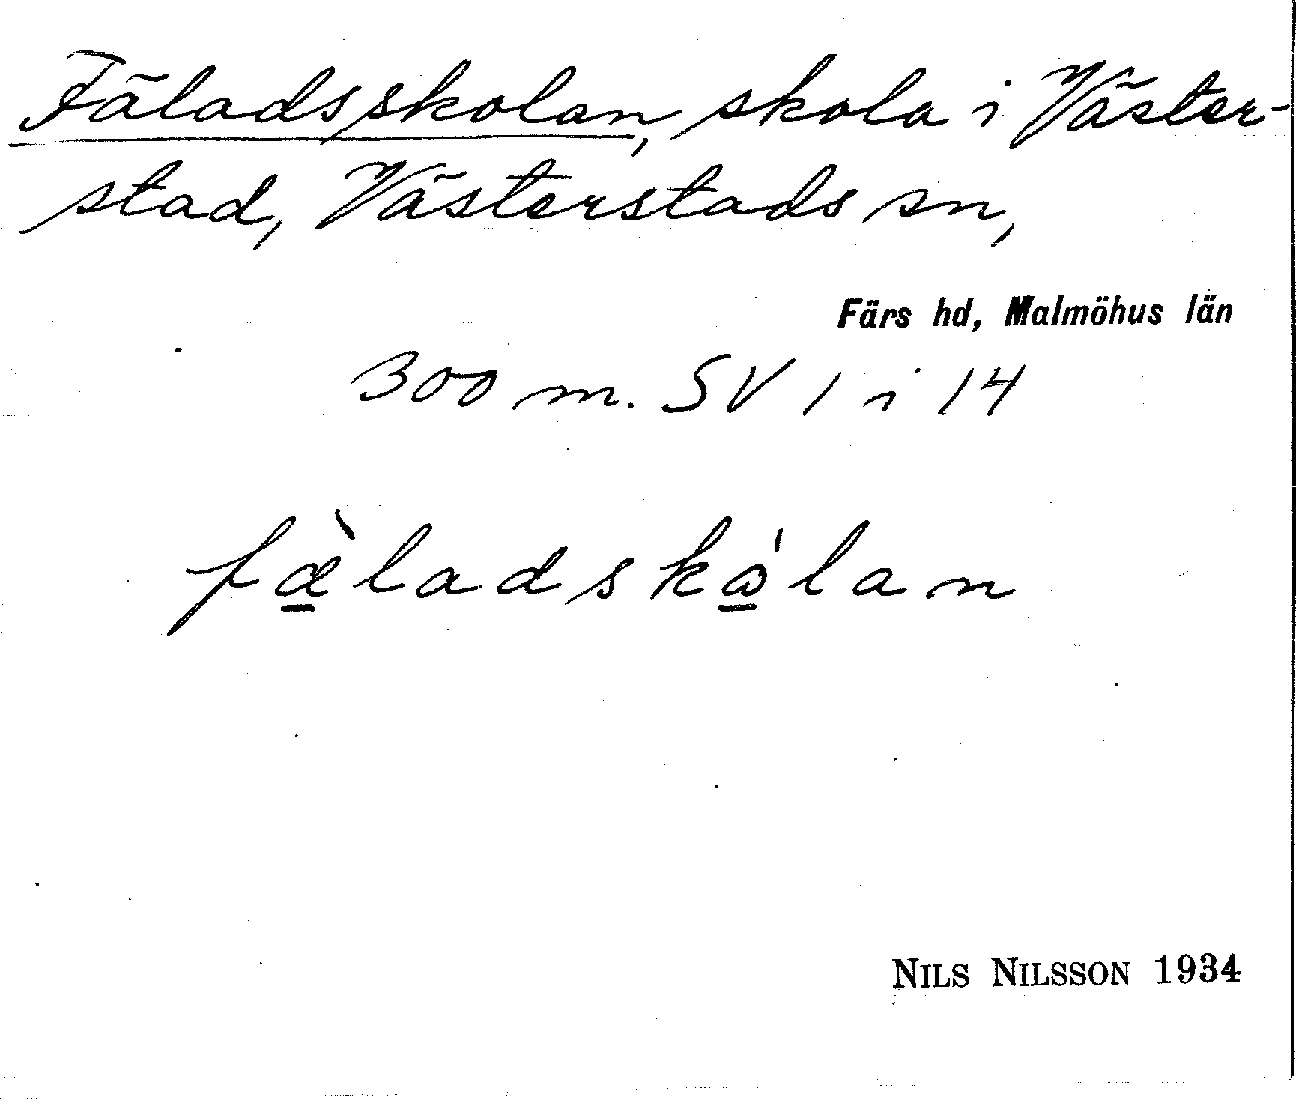 Fäladsskolan, skola i Väster-
stad, Västerstads sn,
Färs hd, Malmöhus län
300 m. SV 1 i 14
fæ̠̀ladskώ̠lan
NILS NILSSON 1934